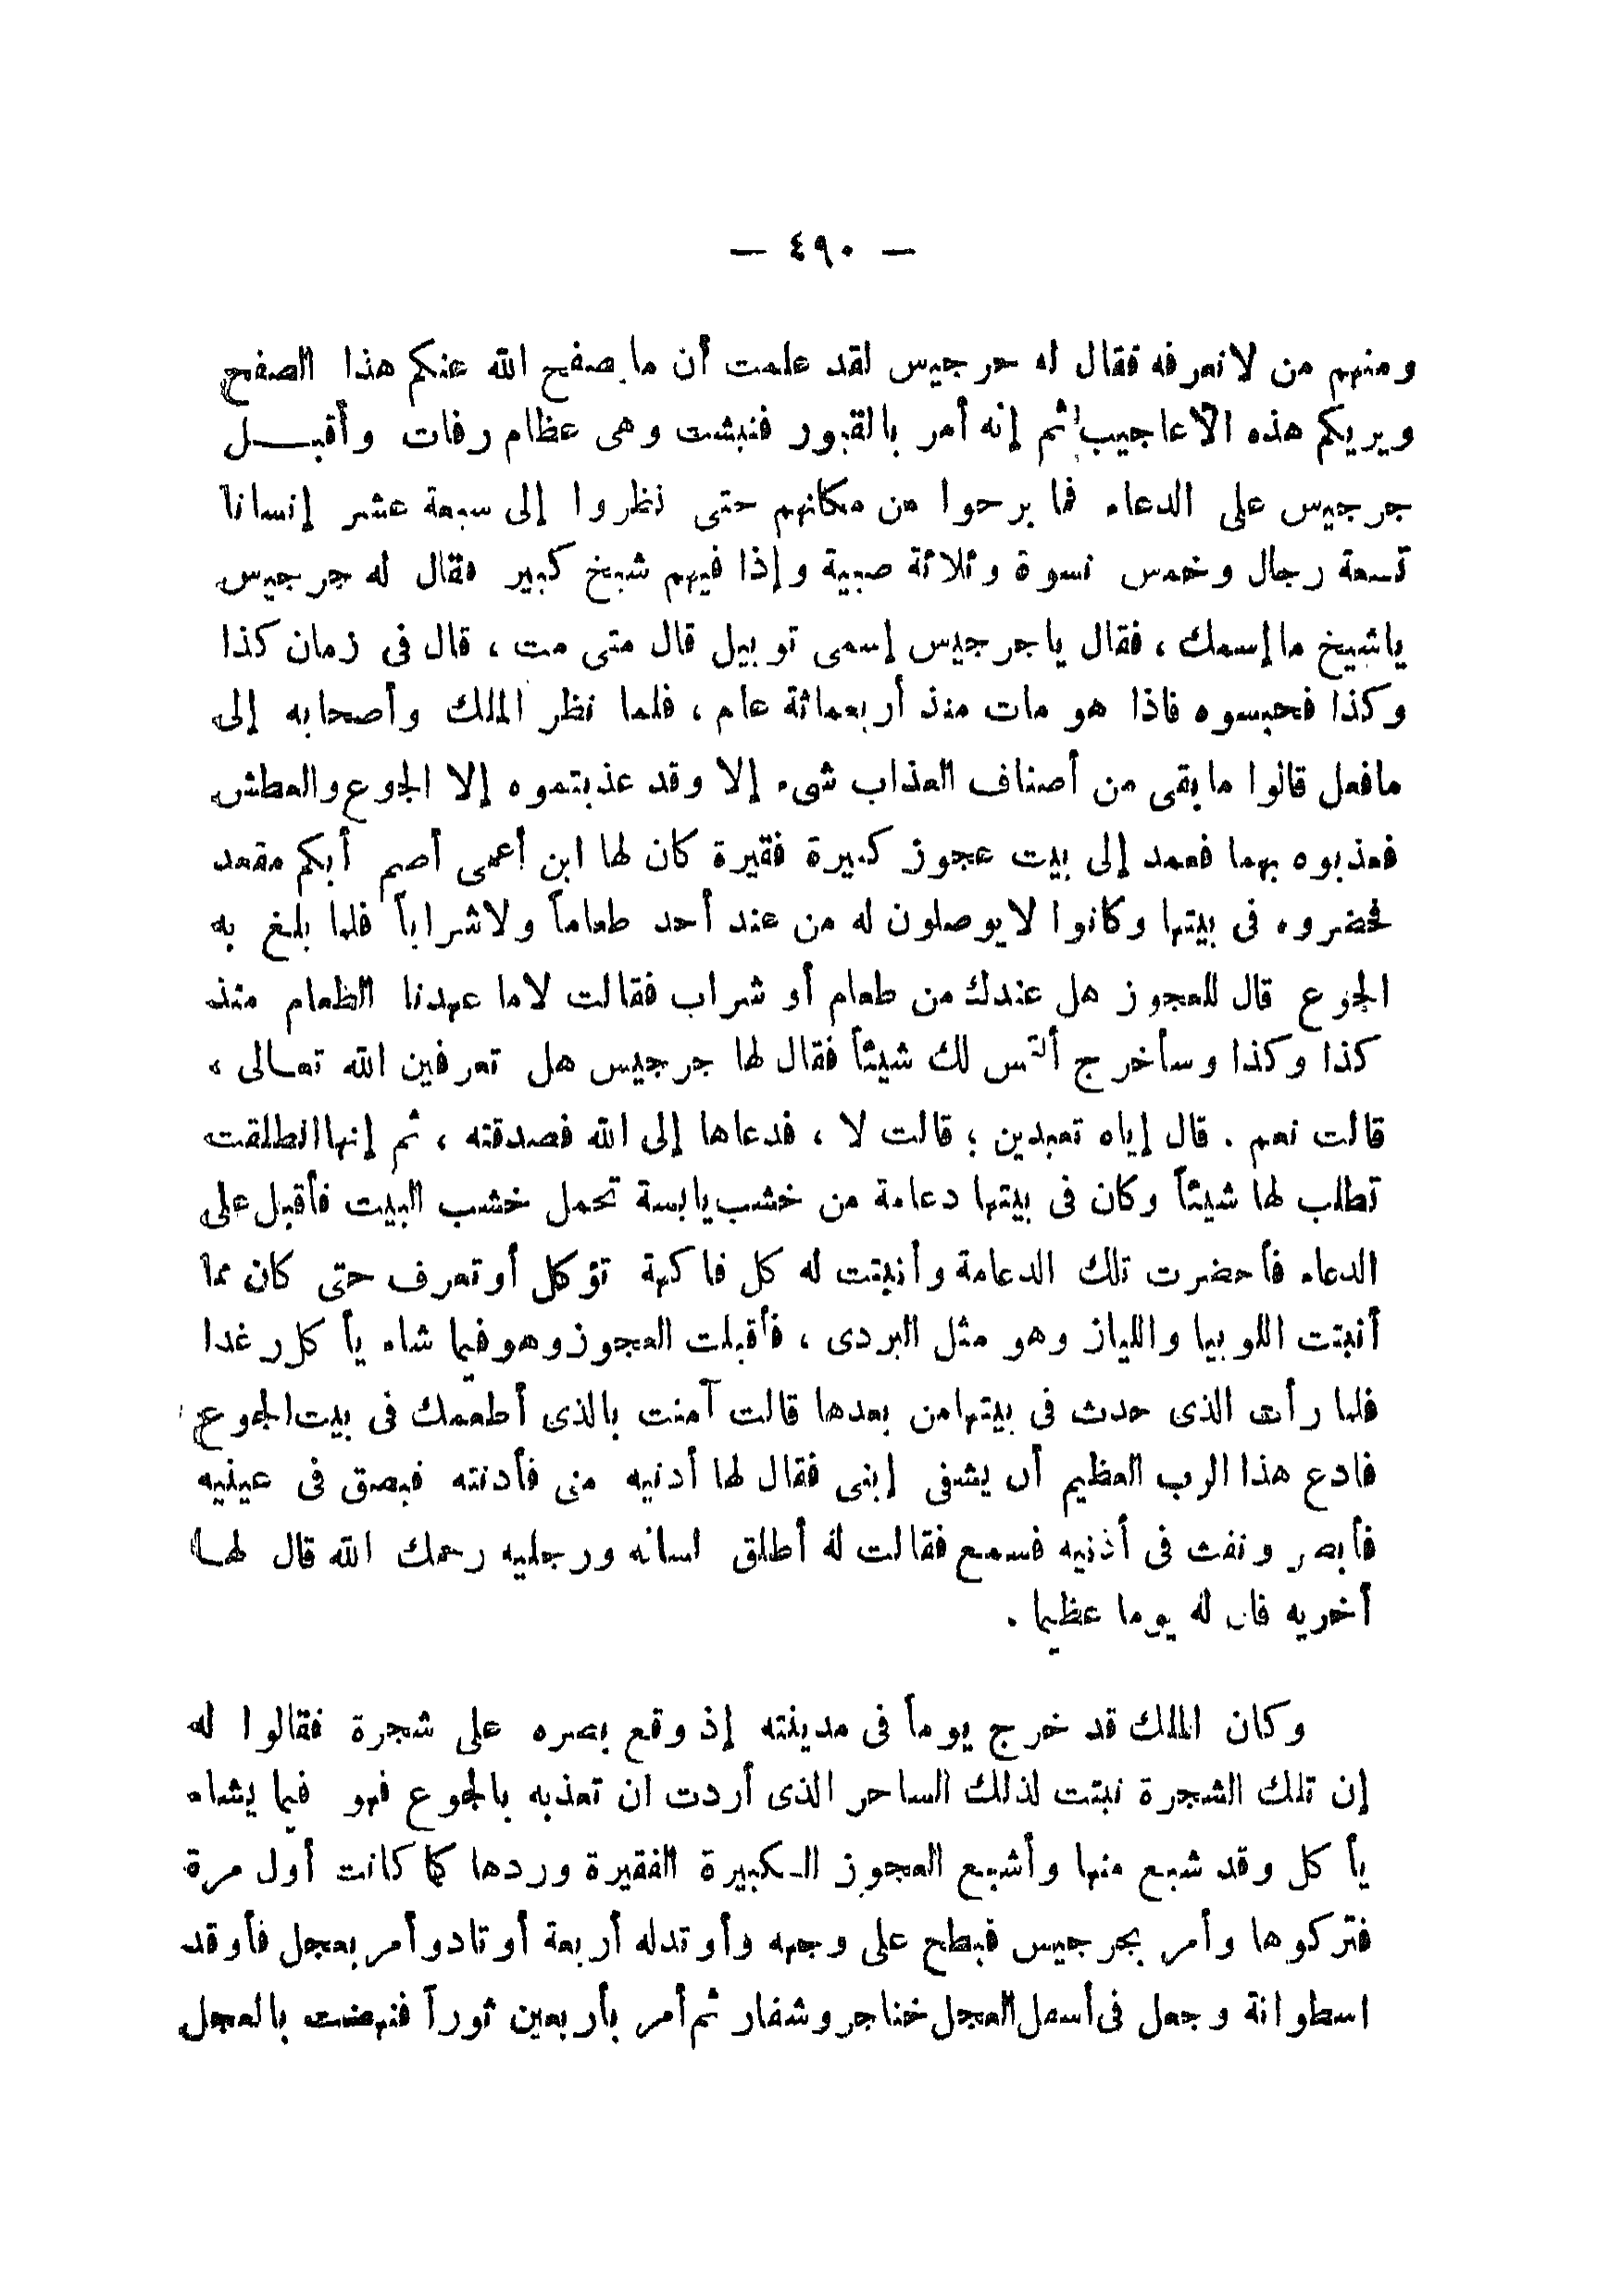 — ٤٩٠ —
ومنهم من لانعرفه فقال له جرجيس لقد علمت أن ما صفح الله عنكم هذا الصفح
ويريكم هذه الأعاجيب ثم إنه أمر بالقبور فنبشت وهى عظام رفات وأقبل
جرجيس على الدعاء فما برحوا من مكانهم حتى نظروا إلى سبعة عشر إنسانا
تسعة رجال وخمس نسوة وثلاثة صبية وإذا فيهم شيخ كبير فقال له جرجيس
ياشيخ ما إسمك ، فقال ياجرجيس إسمى توبيل قال متى مت ، قال فى زمان كذا
وكذا فحبسوه فاذا هو مات منذ أربعمائة عام ، فلما نظر الملك وأصحابه إلى
مافعل قالوا مابقى من أصناف العذاب شىء إلا وقد عذبتموه إلا الجوع والعطش
فعذبوه بهما فعمد إلى بيت عجوز كبيرة فقيرة كان لها ابن أعمى أصم أبكم مقعد
فحضروه فى بيتها وكانوا لايوصلون له من عند أحد طعاماً ولاشراباً فلما بلغ به
الجوع قال للعجوز هل عندك من طعام أو شراب فقالت لاما عهدنا الطعام منذ
كذا وكذا وسأخرج ألتمس لك شيئاً فقال لها جرجيس هل تعرفين الله تعالى ،
قالت نعم . قال إياه تعبدين ؛ قالت لا ، فدعاها إلى الله فصدقته ، ثم إنها انطلقت
تطلب لها شيئاً وكان فى بيتها دعامة من خشب يابسة تحمل خشب البيت فأقبل على
الدعاء فأحضرت تلك الدعامة وأنبتت له كل فاكهة تؤكل أو تعرف حتى كان مما
أنبتت اللوبيا واللياز وهو مثل البردى ، فأقبلت العجوز وهو فيما شاء يأكل رغدا
فلما رأت الذى حدث فى بيتها من بعدها قالت آمنت بالذى أطعمك فى بيت الجوع
فادع هذا الرب العظيم أن يشفى إبنى فقال لها أدنيه منى فأدنته فبصق فى عينيه
فأبصر ونفث فى أذنيه فسمع فقالت له أطلق لسانه ورجليه رحمك الله قال لها
أخريه فان له يوما عظيما .
وكان الملك قد خرج يوماً فى مدينته إذ وقع بصره على شجرة فقالوا له
إن تلك الشجرة نبتت لذلك الساحر الذى أردت ان تعذبه بالجوع فهو فيما يشاء
يأكل وقد شبع منها وأشبع العجوز الكبيرة الفقيرة وردها كما كانت أول مرة
فتركوها وأمر بجرجيس فبطح على وجهه وأوتدله أربعة أوتاد وأمر بعجل فأوقد
اسطوانة وجعل فى أسفل العجل خناجر وشفار ثم أمر بأربعين ثوراً فنهضت بالعجل